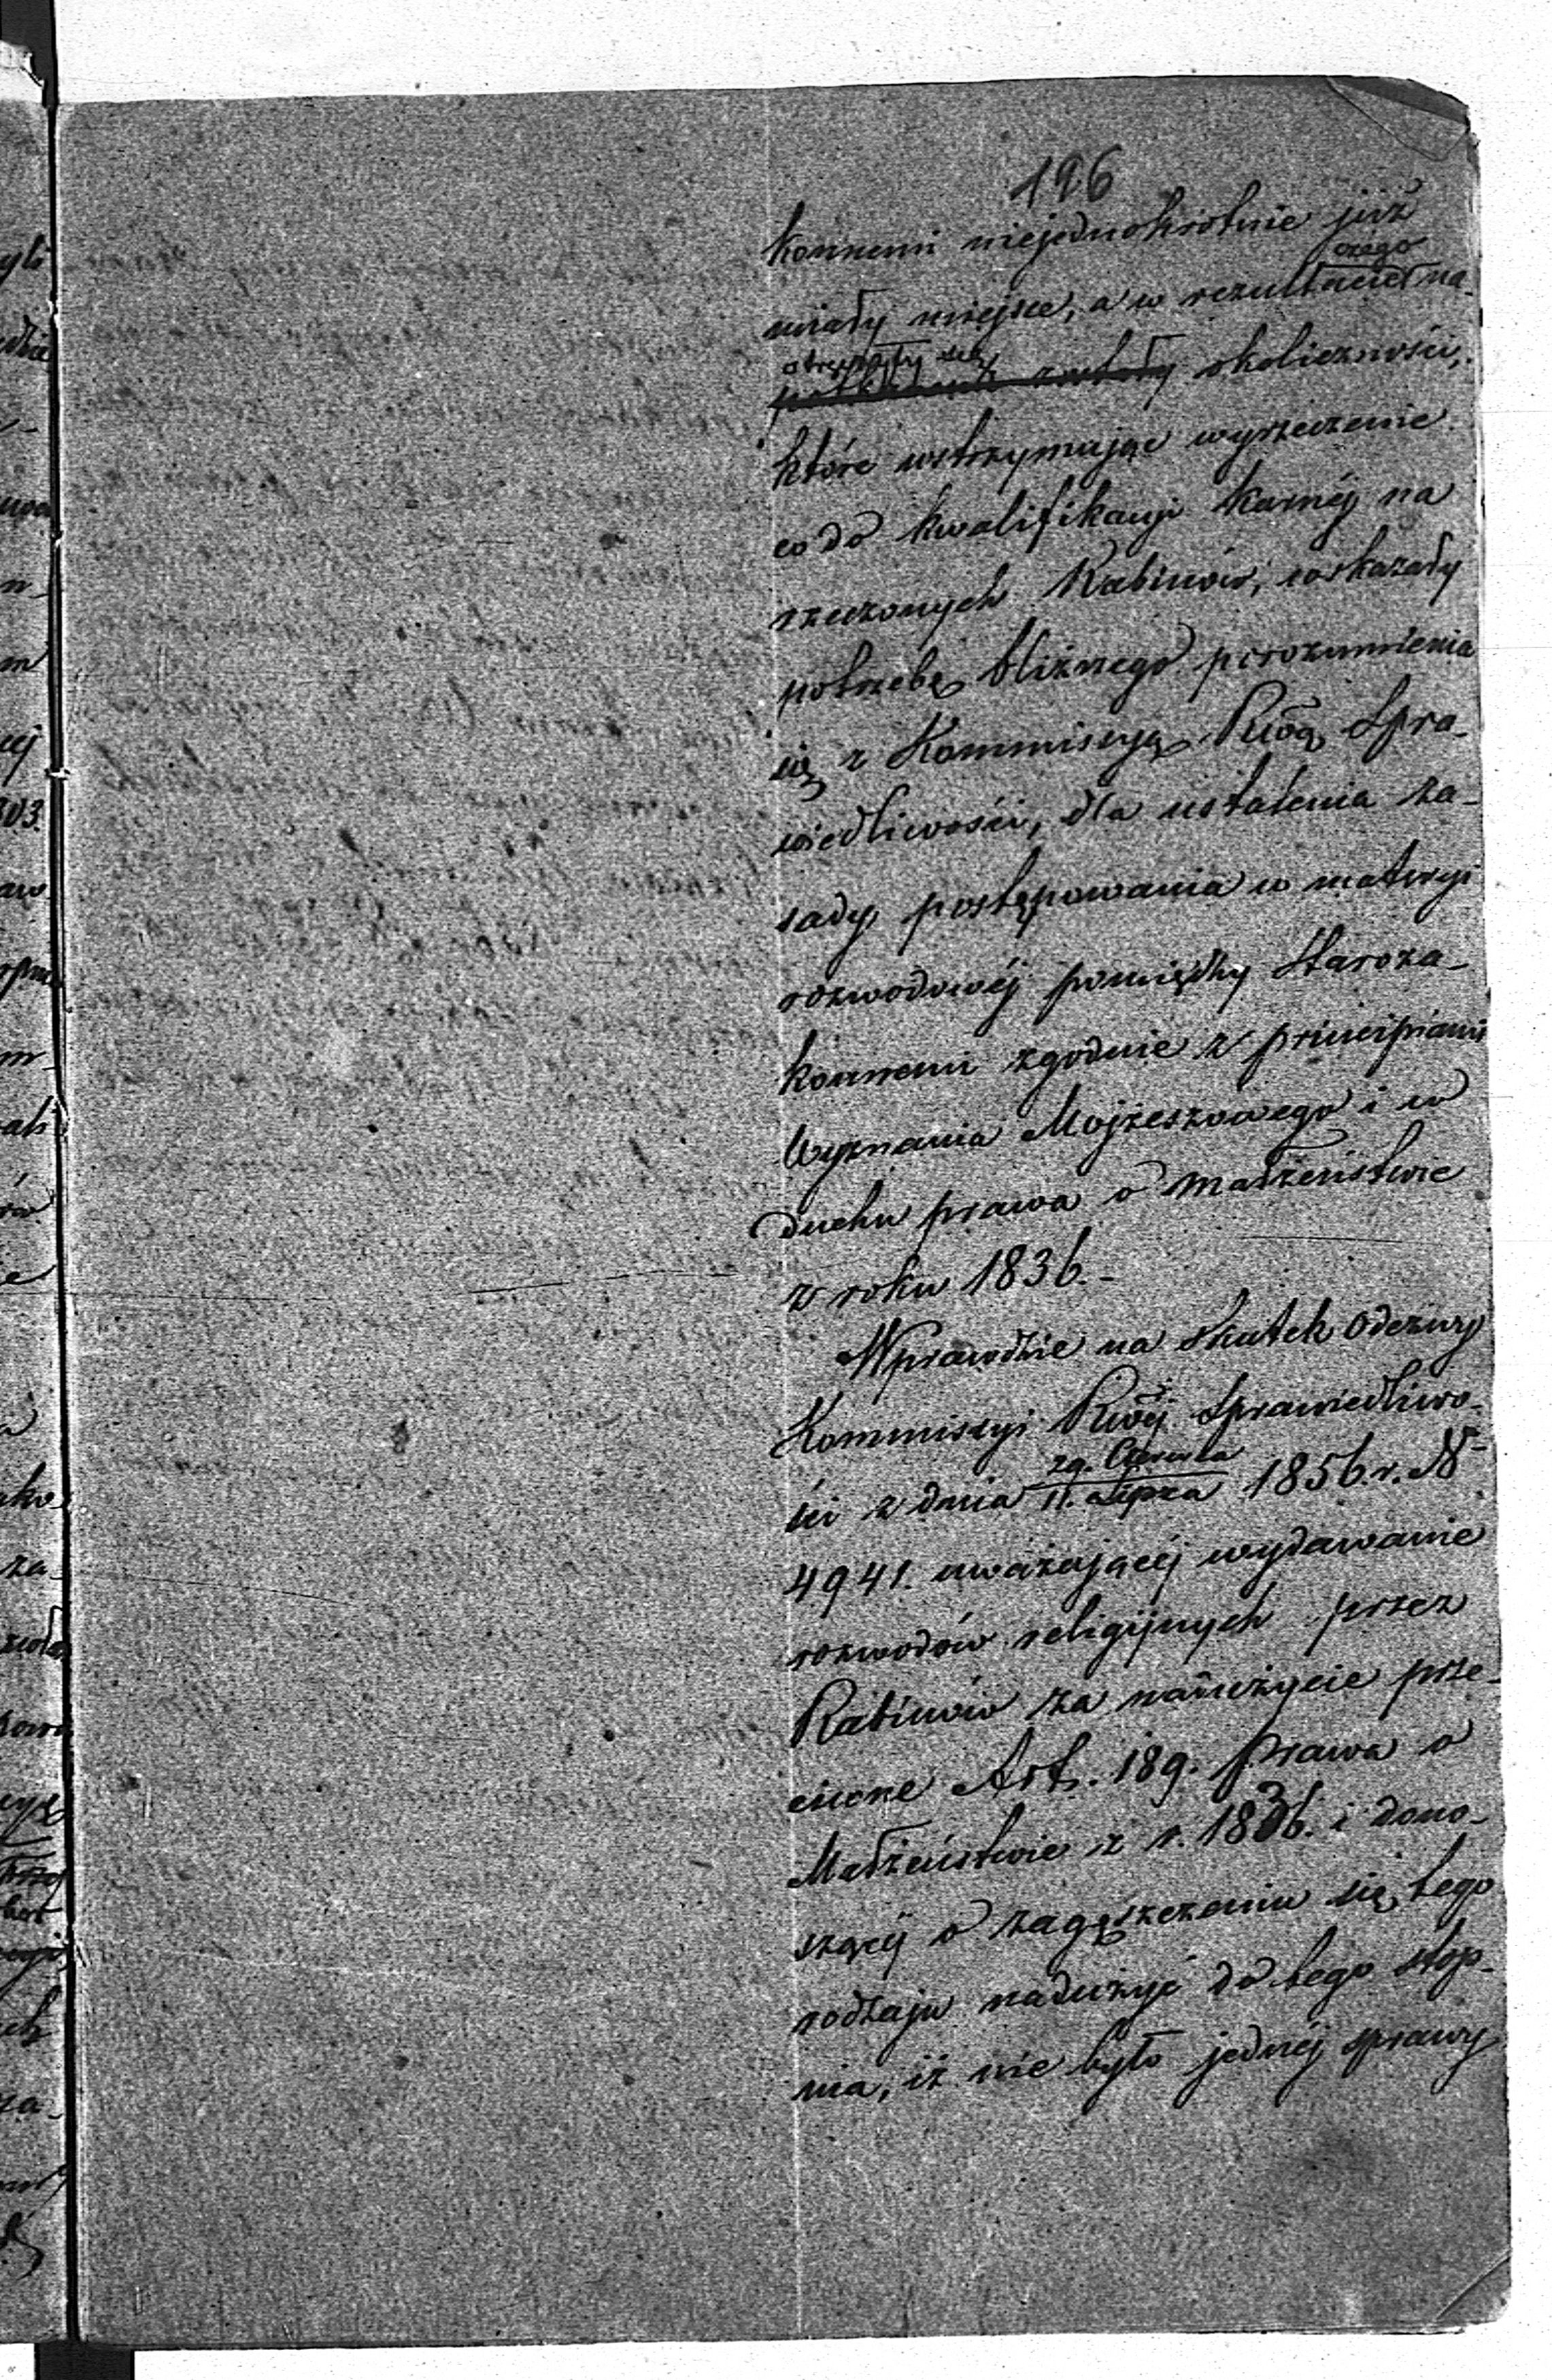 196
konnemi niejednokrotnie już
miały miejsce, a w rezultacie czego na-
stręczyły się okoliczności,
które wstrzymując wyrzeczenie
co do kwalifikacyi karnéj na
rzeczonych Rabinów, wskazały
potrzebę bliższego porozumienia
się z Kommissyą Rwą Spra-
wiedliwości, dla ustalenia za-
sady postępowania w materyi
rozwodowéj pomiędzy Staroza-
konnemi zgodnie z principiami
Wyznania Mojżeszowego i w
duchu prawa o Małżeństwie
z roku 1836.-
Wprawdzie na skutek Odezwy
Kommissyi Rwéj Sprawiedliwo-
ści z dnia 29. Czerwca / 11. Lipca 1856. r. N
4941. uważającéj wydawanie
rozwodów religijnych przez
Rabinów za nadużycie prze-
ciwne Art. 189. prawa o
Małżeństwie z r. 1836. i dono-
szącéj o zagęszczeniu się tego
rodzaju nadużyć do tego stop-
nia, iż nie było jednéj sprawy